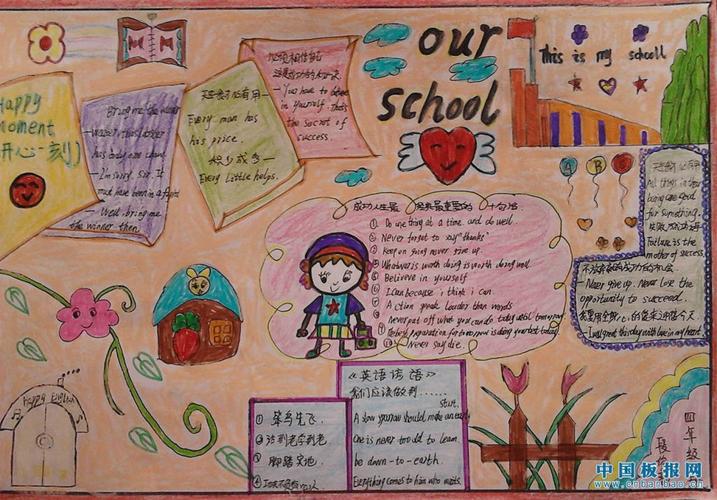 Happy
Moment
(开心一刻)
Bring me the winner
—I'm sorry, sir. It
must have been in a fight
— Well, bring me
the winner then.
天生我才必有用—
Every man has
his price.
积少成多—
Every little helps.
必须相信自己
这是成功的秘诀
— You have to believe
in yourself. That's
the secret of
success.
our
school
This is my scholl
A B C
All things in their
being are good
for something.
失败乃成功之母
Failure is the
mother of success.
— Never give up, Never lose the
opportunity to succeed.
I will greet this day with love in my heart.
成功人生最经典最重要的十句话
① Do one thing at a time and do well.
② Never forget to say "thanks"
③ Keep on going never give up.
④ Whatever is worth doing is worth doing well.
⑤ Believe in yourself
⑥ I can because i think i can.
⑦ Action speak louder than words
⑧ Never put off what you can do today until tomorrow.
⑨ The best preparation for tomorrow is doing your best today
⑩ Never say die.
《英语谚语》
我们应该做到……
① 笨鸟先飞.
② 活到老学到老
③ 脚踏实地.
④
A slow sparrow should make an early
start.
One is never too old to learn.
be down-to-earth.
Everything comes to him who waits.
Happy English
四年级
中国板报网
www.cnbanbao.cn